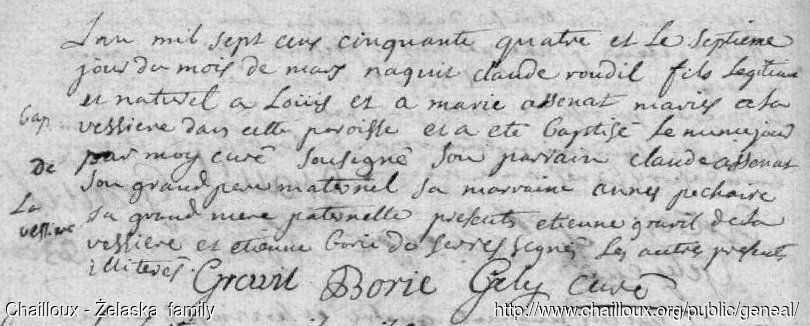 L'an mil sept cens cinquante quatre et Le septieme
jour du mois de mars naquit claude roudil fils Legitime
et naturel a Loüis et a marie assenat mariés a La
vessiere dans cette paroisse et a eté baptisé Le meme jour
par moy curé sousigné son parrain claude assenat
son grand pere maternel sa marraine annes pechaire
sa grand mere paternelle presents etienne gravil de la
vessiere et etienne borie de serres signés Les autres presents
illiterés
Bap.
De
La
vessiere
Gravil Borie Gely curé
Chailloux - Żelaska family
http://www.chailloux.org/public/geneal/